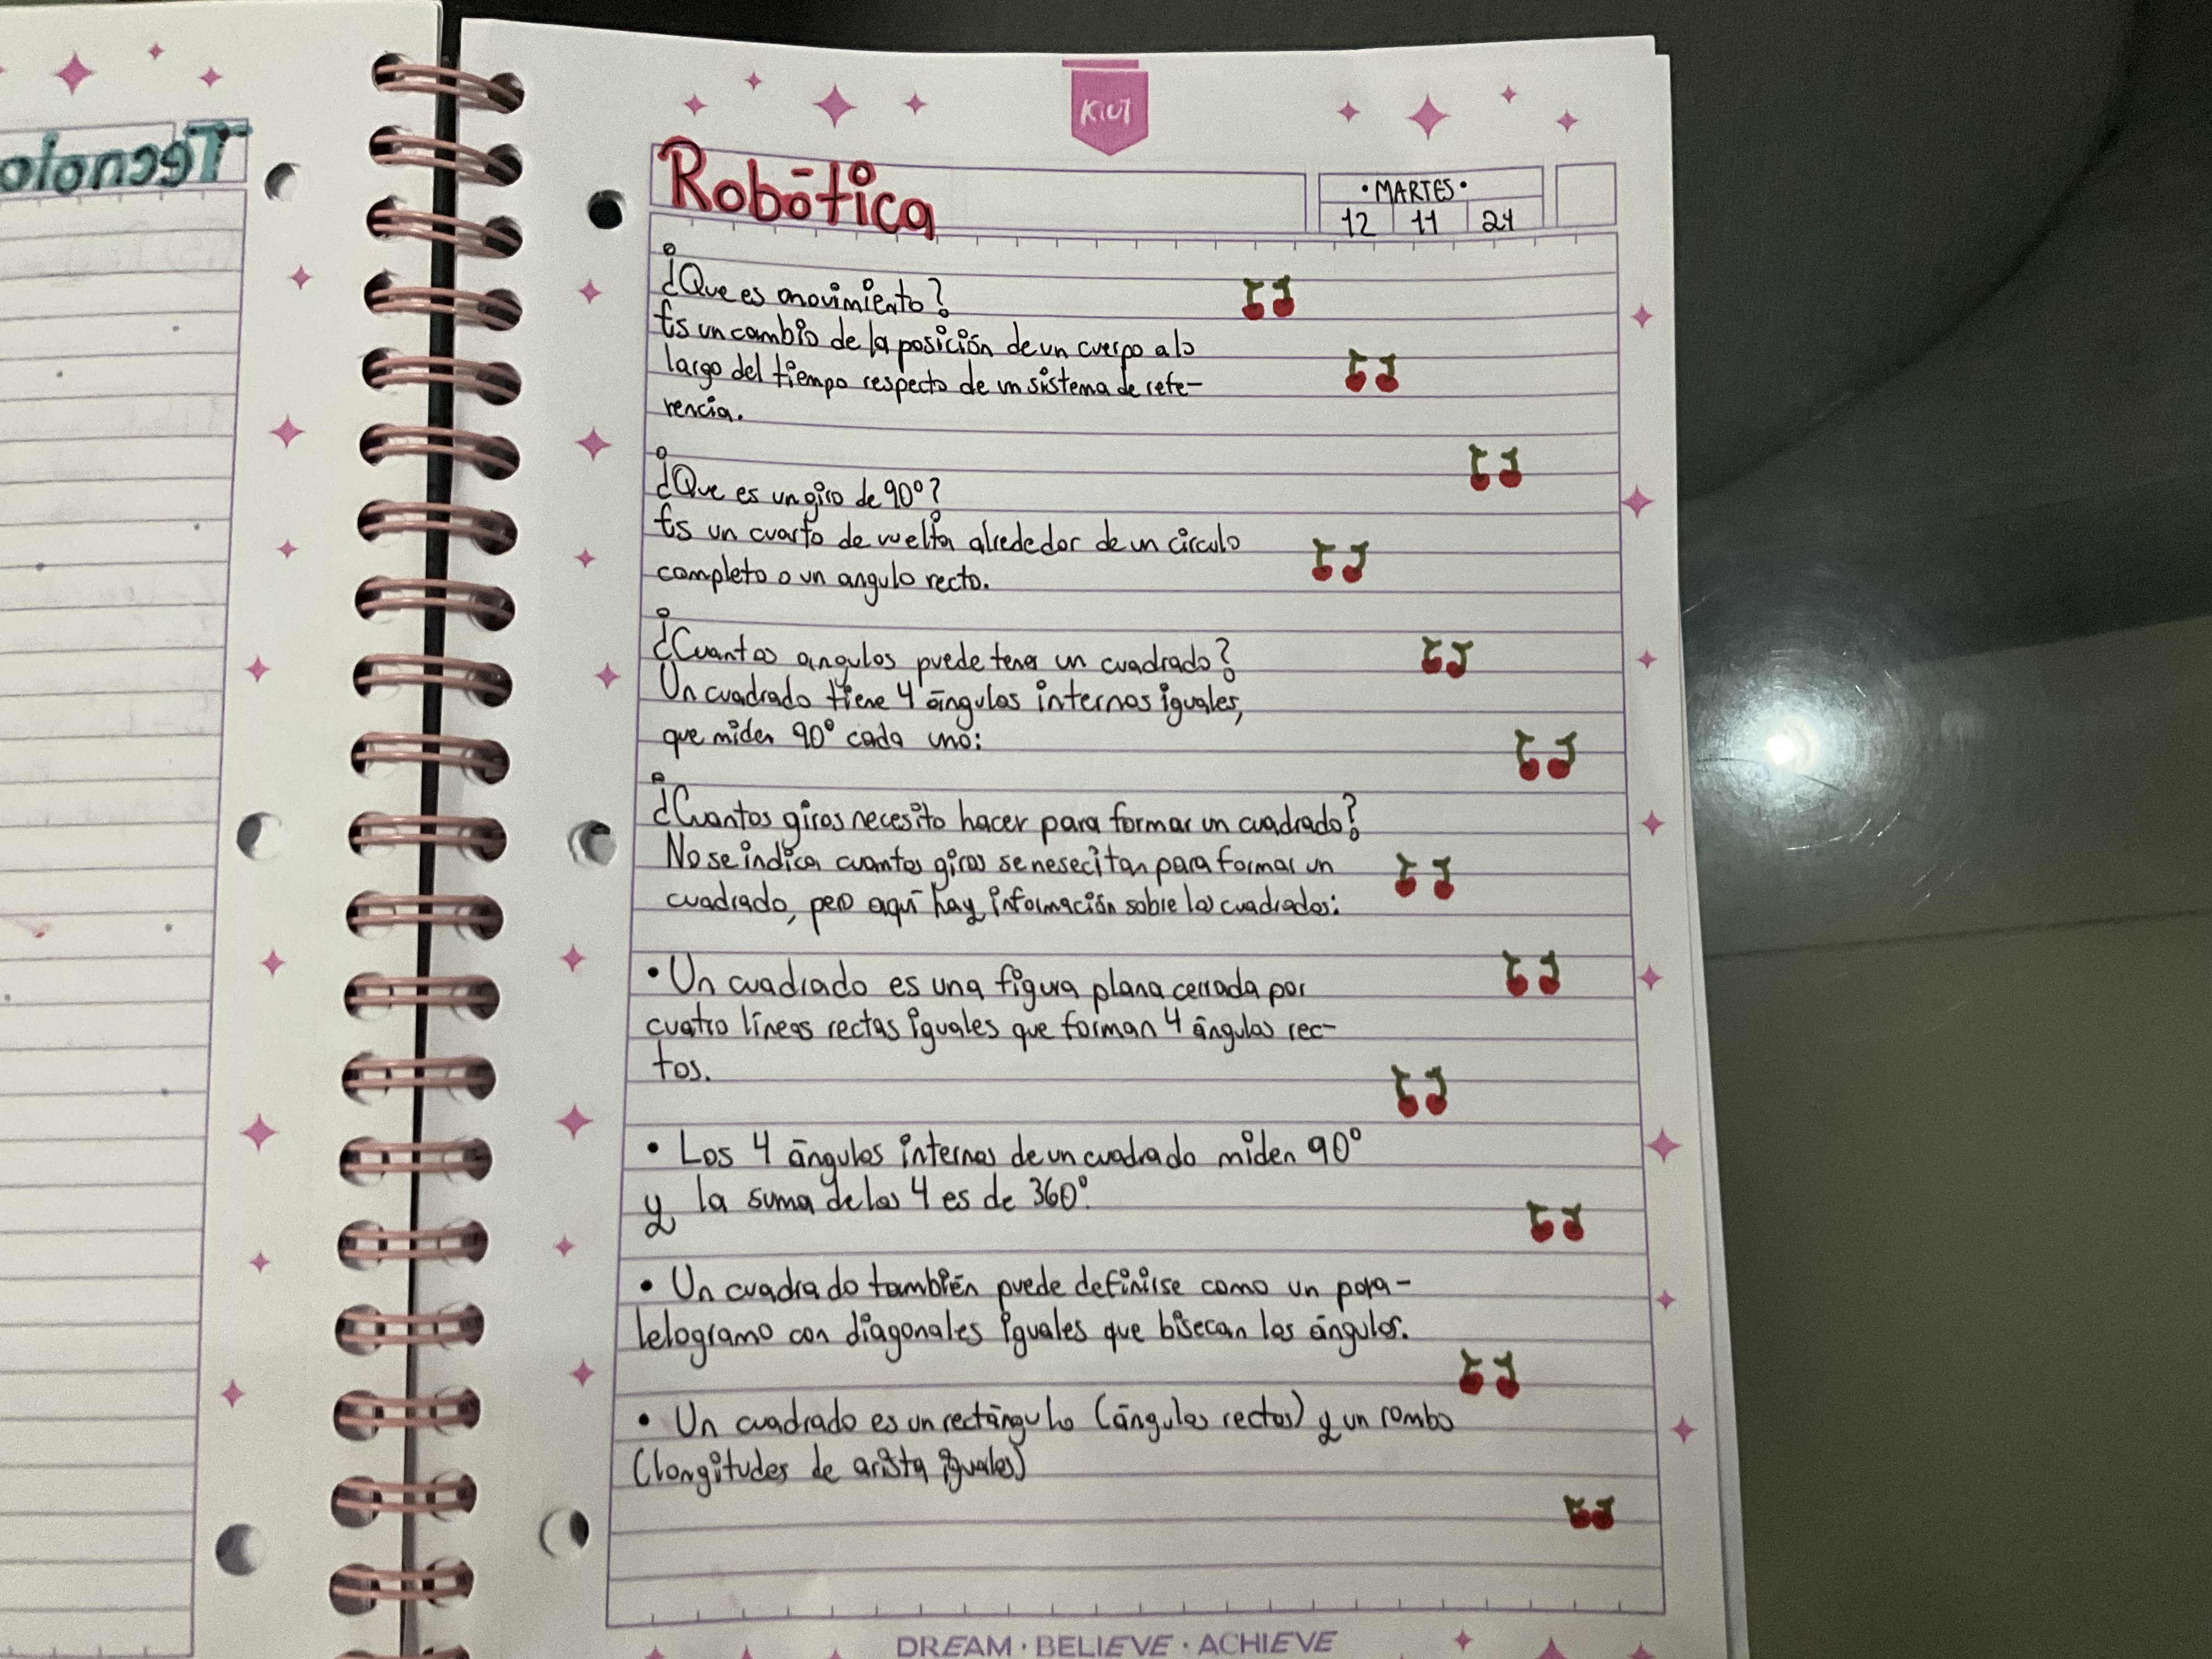 Tecnolo
KIUT
Robótica
• MARTES •
12 11 24
¿Que es movimiento?
Es un cambio de la posición de un cuerpo a lo
largo del tiempo respecto de un sistema de refe-
rencia.
¿Que es un giro de 90°?
Es un cuarto de vuelta alrededor de un circulo
completo o un angulo recto.
¿Cuantos angulos puede tener un cuadrado?
Un cuadrado tiene 4 ángulos internos iguales,
que miden 90° cada uno:
¿Cuantos giros necesito hacer para formar un cuadrado?
No se indica cuantos giros se nesecitan para formar un
cuadrado, pero aquí hay información sobre los cuadrados:
• Un cuadrado es una figura plana cerrada por
cuatro líneas rectas iguales que forman 4 ángulos rec-
tos.
• Los 4 ángulos internos de un cuadrado miden 90°
y la suma de los 4 es de 360°.
• Un cuadrado también puede definirse como un para-
lelogramo con diagonales iguales que bisecan los ángulos.
• Un cuadrado es un rectángulo (ángulos rectos) y un rombo
(longitudes de arista iguales)
DREAM · BELIEVE · ACHIEVE